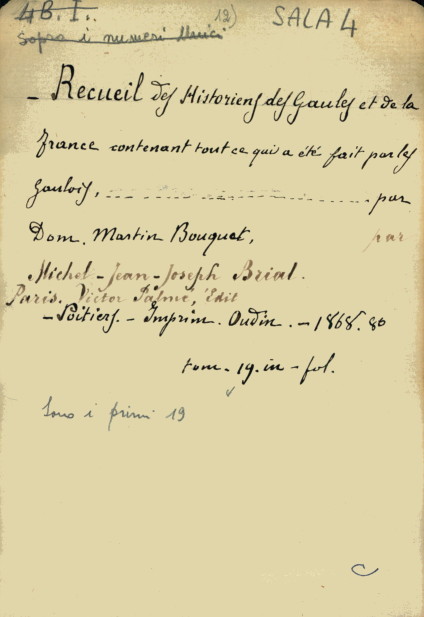 4B. I. 12) SALA 4
Sopra i numeri Unici
- Recueil des Historiens des Gaules et de la
France contenant tout ce qui a été fait par les
Gaulois, ........................ par
Dom. Martin Bouquet, par
Michel-Jean-Joseph Brial.
Paris. Victor Palmé, Édit
- Poitiers. - Imprim. Oudin. - 1868.80
tom. 19. in-fol.
Sono i primi 19
C